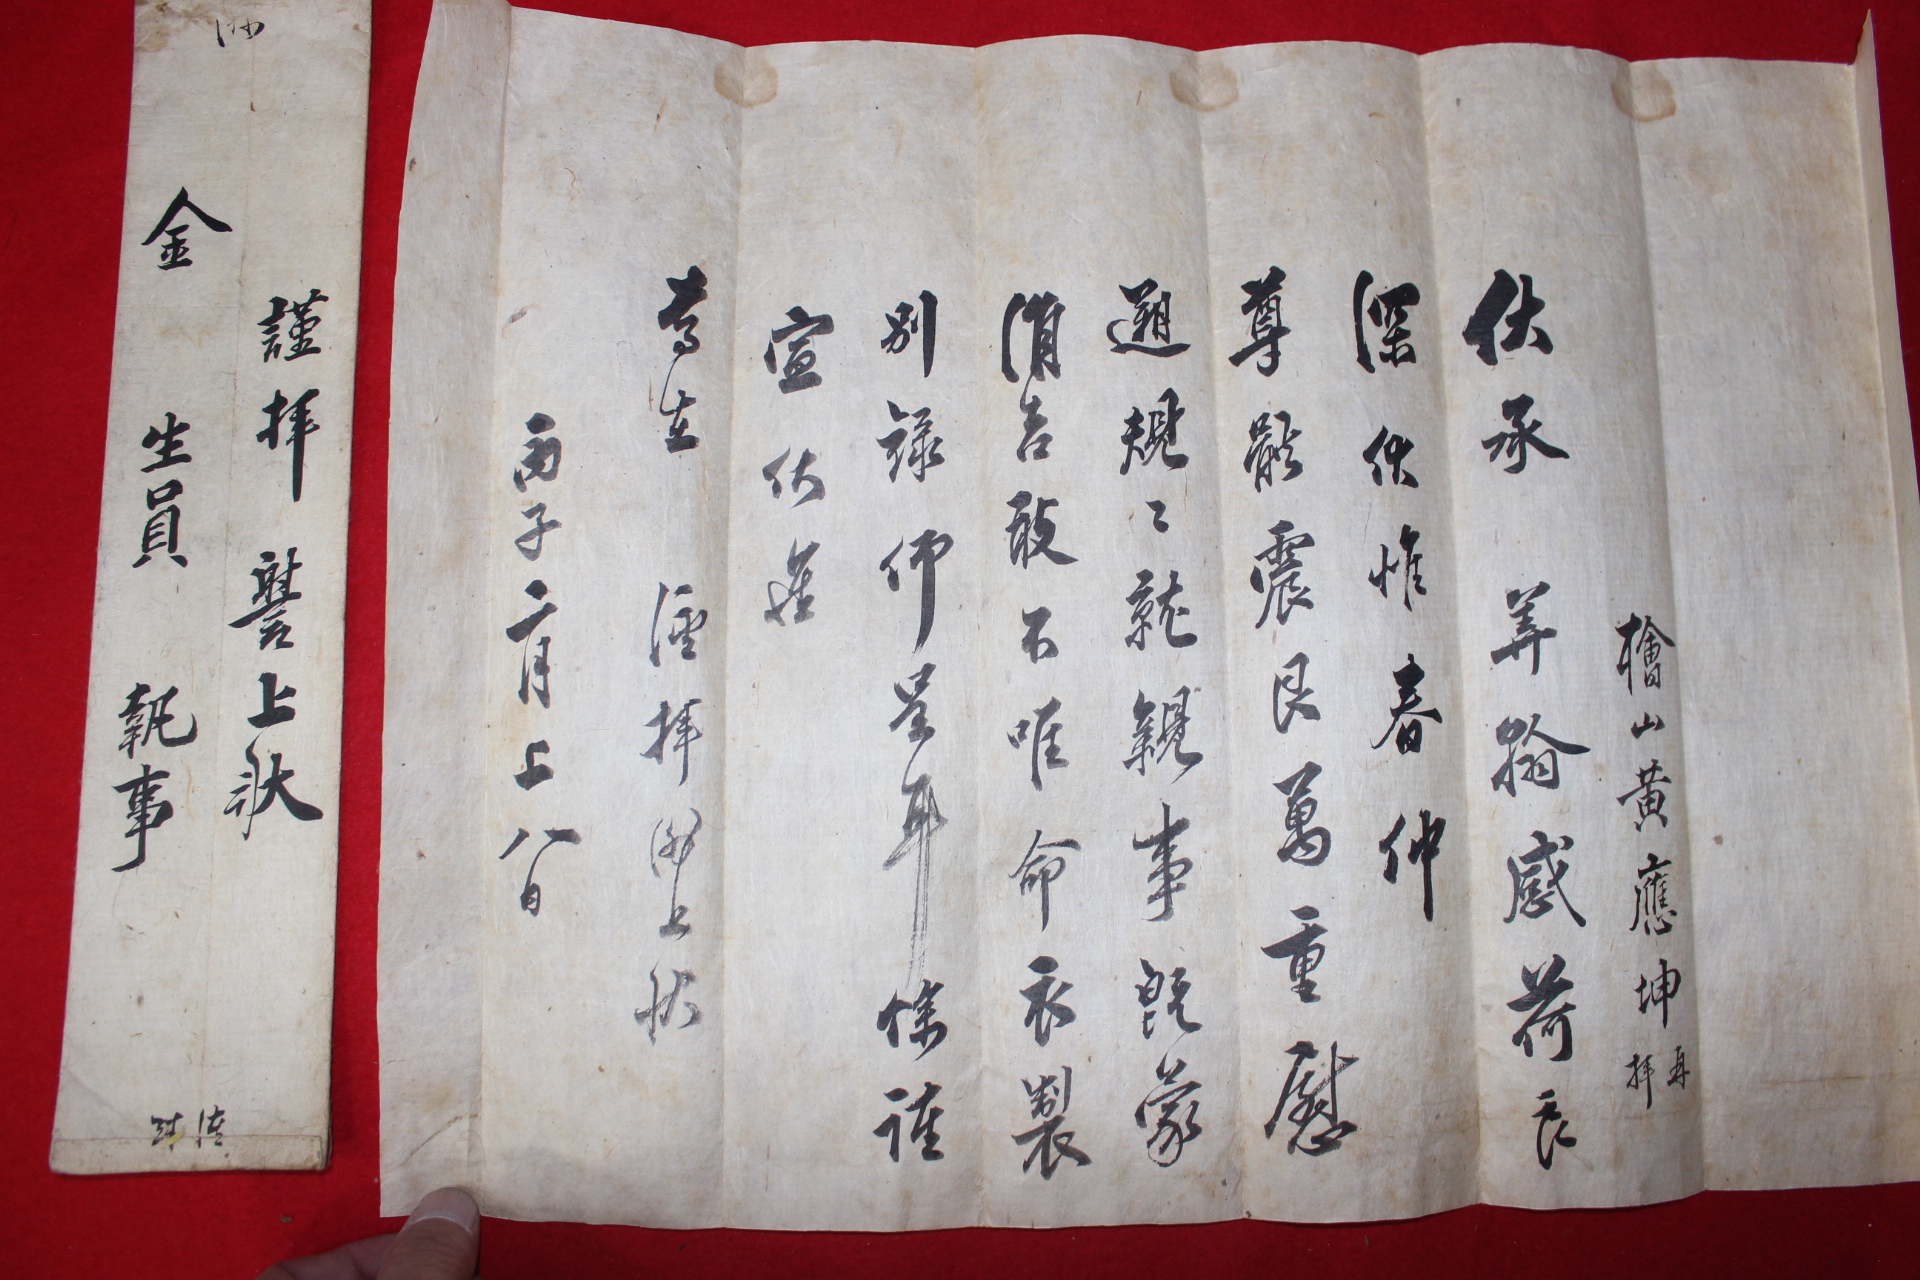 檜山黃應坤 再拜
伏承 華翰感荷良
深伏惟春仲
尊體震艮萬重慰
遡規〻就親事旣蒙
涓吉敢不唯命衣製
別錄仰呈耳餘謹
宣伏惟
尊 謹拜謝上狀
丙子二月上八日
謹拜 謝上狀
金 生員 執事
謹封